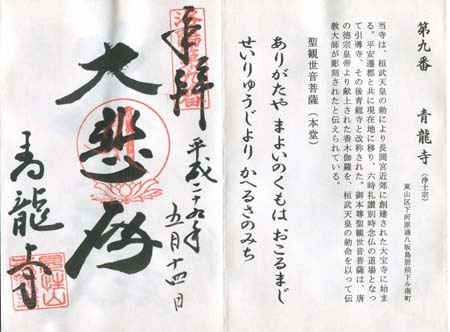 第九番　青龍寺（浄土宗）
東山区下河原通八坂鳥居前下ル南町
当寺は、桓武天皇の勅により長岡宮近郊に創建された大宝寺に始ま
る。平安遷都と共に現在地に移り、六時礼讃別時念仏の道場となっ
て引導寺、その後青龍寺と改称された。御本尊聖観世音菩薩は、唐
の徳宗皇帝より献上された香木伽羅を、桓武天皇の勅命を以って伝
教大師が彫刻されたと伝えられている。
聖観世音菩薩（本堂）
ありがたや　まよいのくもは　おこるまじ
せいりゅうじより　かへるさのみち
奉拝
洛陽第九番
平成二十九年
五月十四日
大悲殿
青龍寺